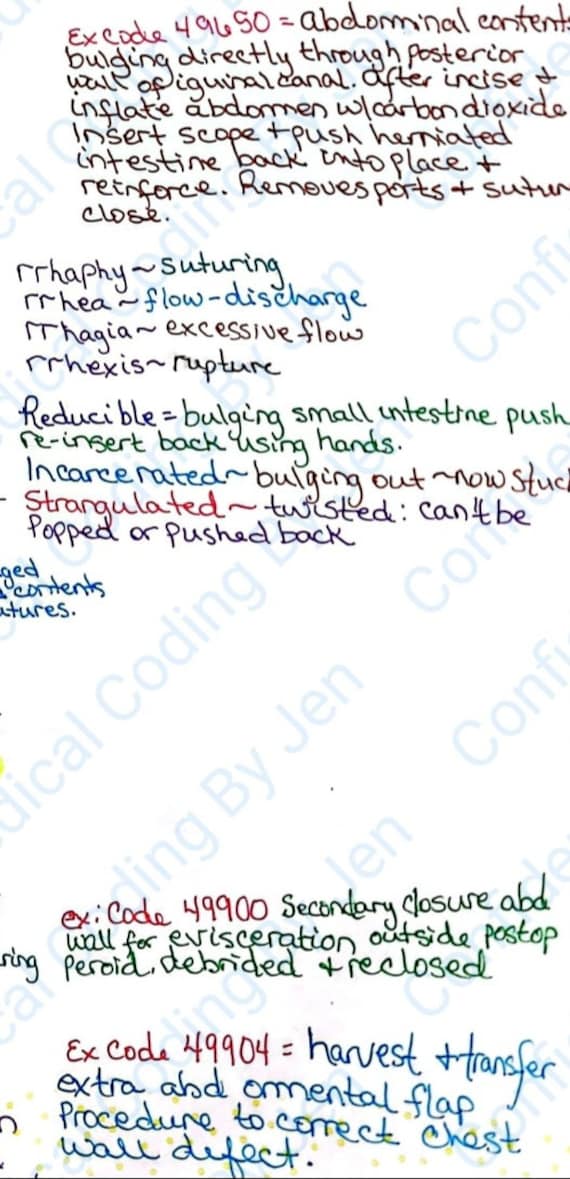 Ex Code 49650 = abdominal contents
bulging directly through posterior
wall of iguinal canal. After incise +
inflate abdomen w/carbon dioxide
Insert scope + push herniated
intestine back into place +
reinforce. Removes ports + sutur
close.
rrhaphy ~ suturing
rrhea ~ flow-discharge
rrhagia ~ excessive flow
rrhexis ~ rupture
Reducible = bulging small intestine push
re-insert back using hands.
Incarcerated ~ bulging out ~ now stuc
- Strangulated ~ twisted: can't be
Popped or pushed back
ged
contents
tures.
ex: Code 49900 Secondary closure abd
wall for evisceration outside postop
ring peroid, debrided + reclosed
Ex Code 49904 = harvest + transfer
extra abd ommental flap
n Procedure to correct chest
wall defect.
Medical Coding By Jen
Confidential